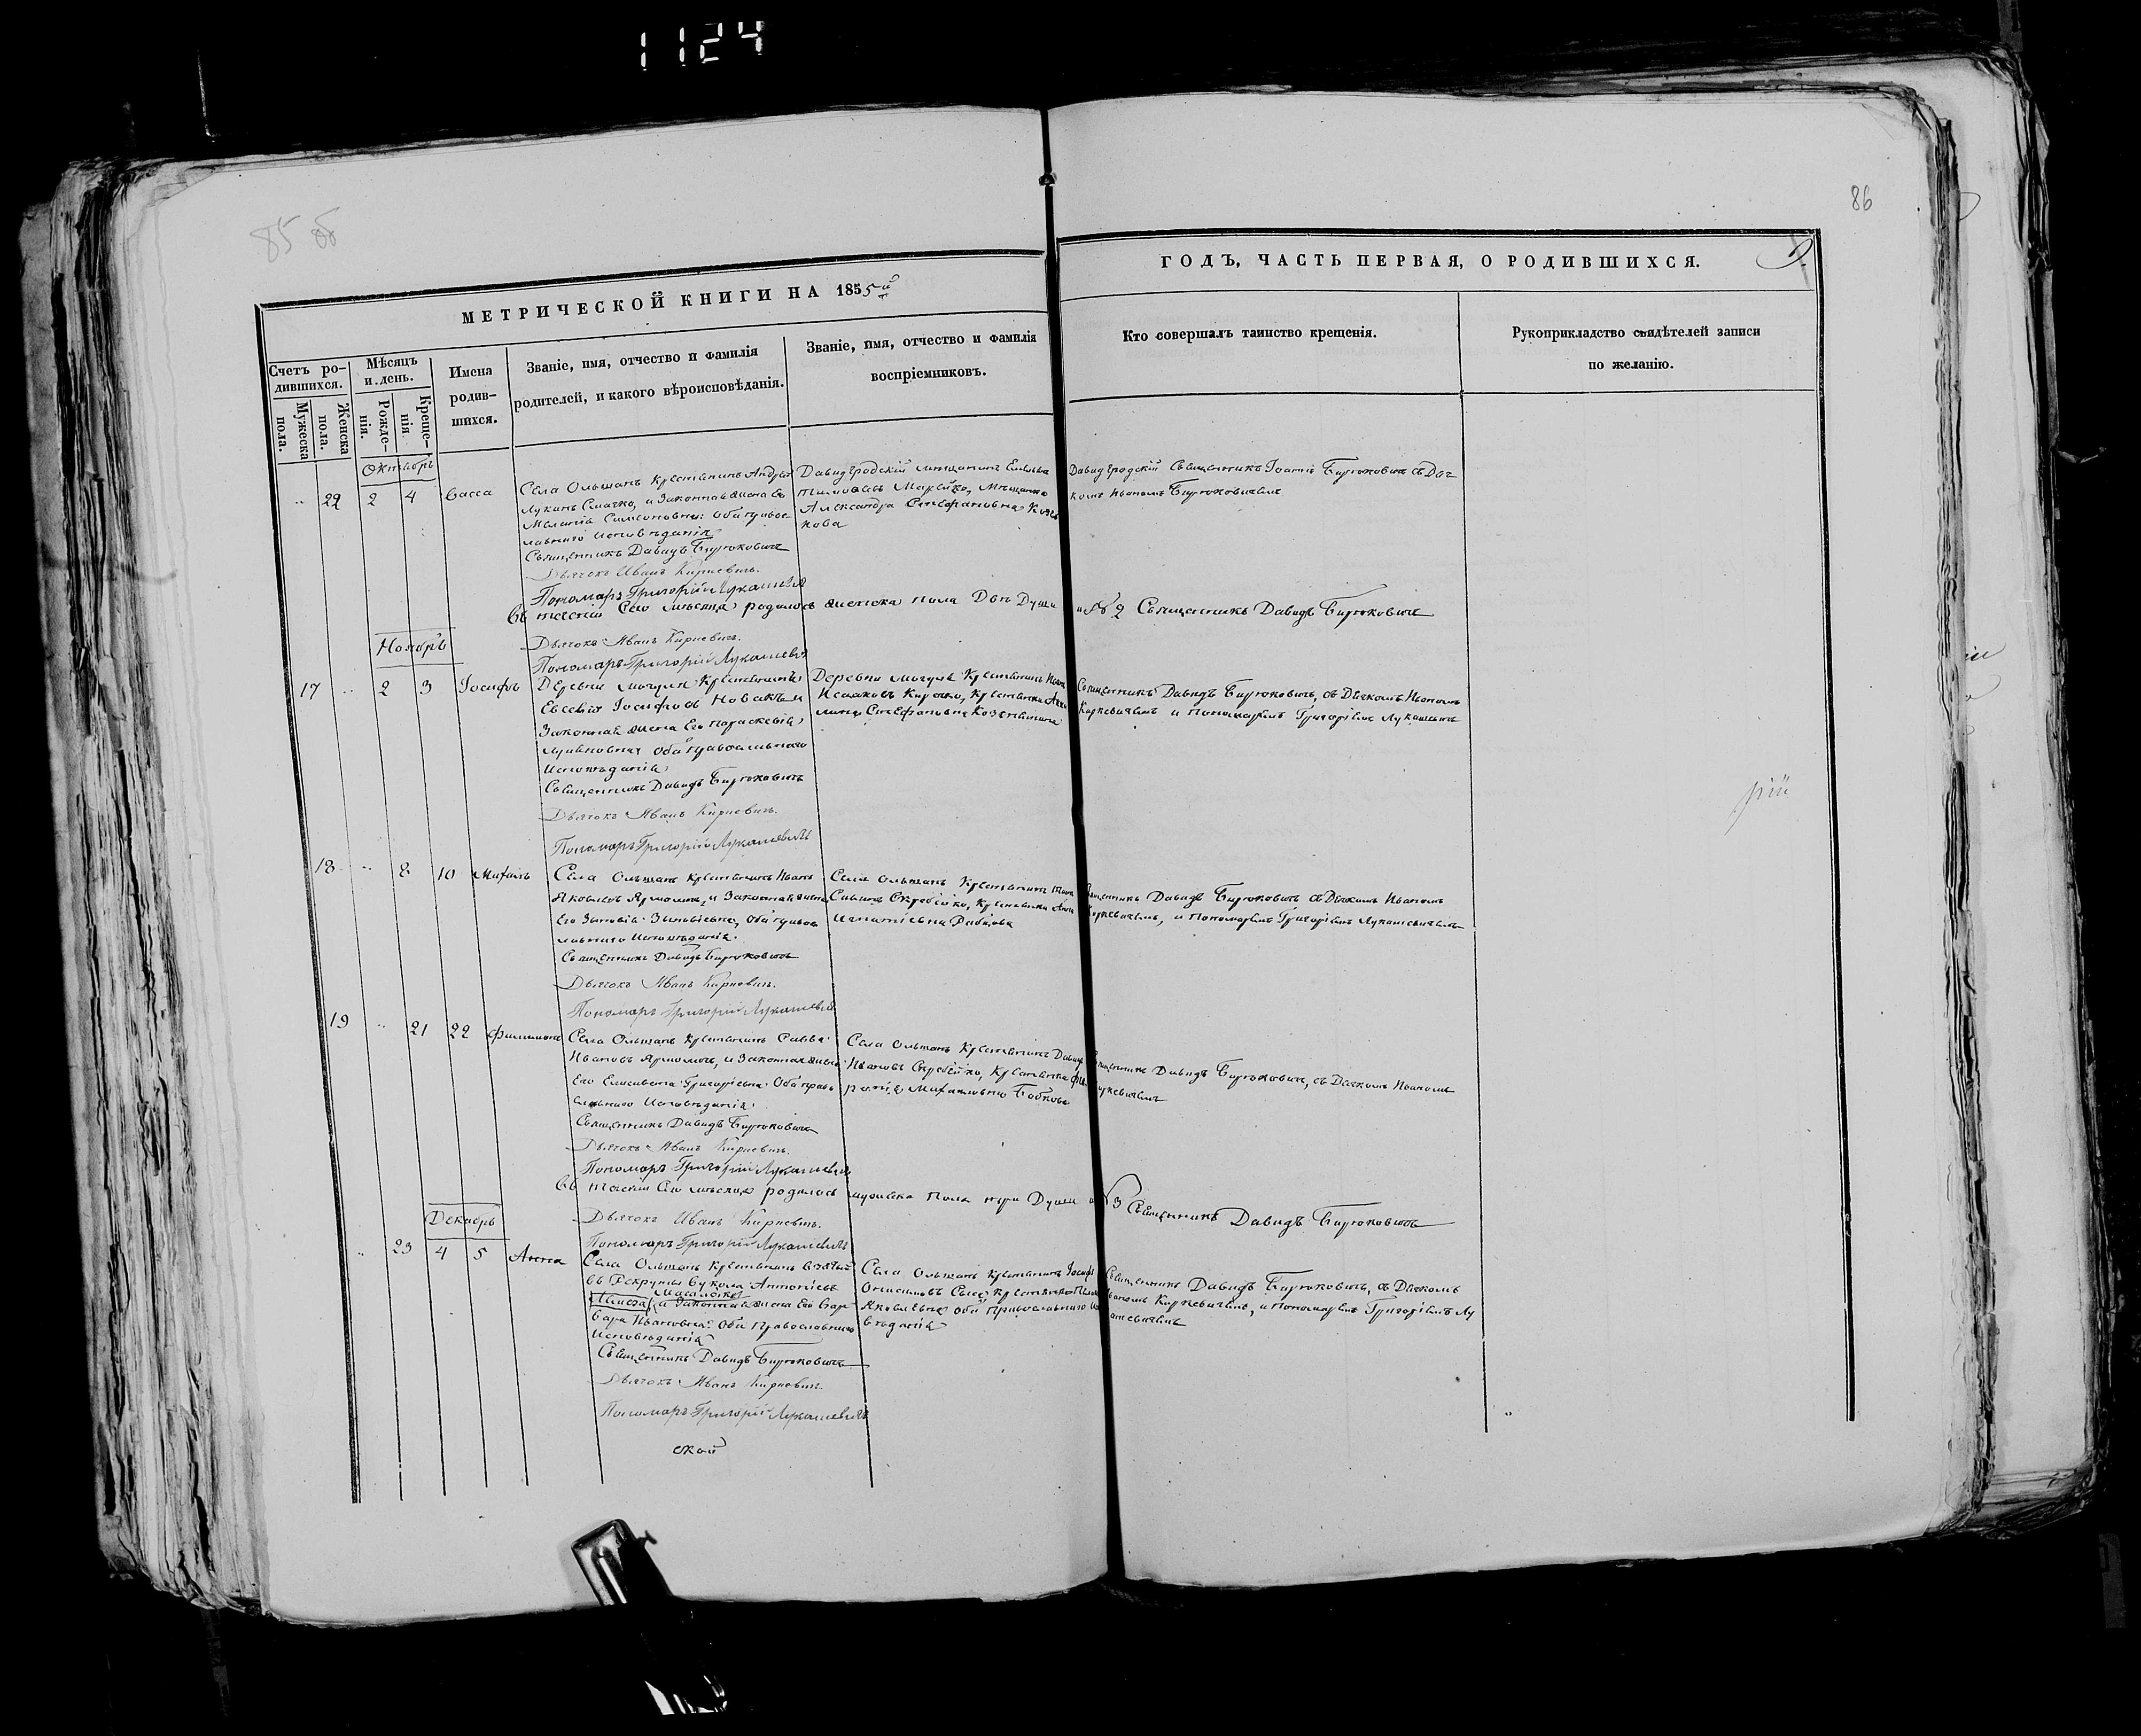 1124
85 об
86
МЕТРИЧЕСКОЙ КНИГИ НА 1855й
ГОДЪ, ЧАСТЬ ПЕРВАЯ, О РОДИВШИХСЯ.
9.
Счетъ ро-
дившихся.
Мужеска
пола.
Женска
пола.
Мѣсяцъ
и день.
Рожде-
нія.
Креще-
нія
Имена
родив-
шихся.
Званіе, имя, отчество и фамилія
родителей, и какого вѣроисповѣданія.
Званіе, имя, отчество и фамилія
воспріемниковъ.
Кто совершалъ таинство крещенія.
Рукоприкладство свидѣтелей записи
по желанію.
Октябрь
22 2 4 Васса
Села Ольшанъ Крестьянинъ Андрей
Лукинъ и Законная жена Его
Меланія Симеоновна: Оба право-
лавнаго исповѣданія
Священникъ Давидъ Бирюковичъ
Дьячокъ Иванъ Киркевичъ.
Пономаръ Григорій Лукашевичъ
Давидгродскій мѣщанинъ
Александра Стефановна
Давидгродскій Священникъ Іоаннъ Бирюковичъ съ Дьяч-
комъ Иваномъ Бирюковичемъ
Въ теченіи Сего мѣсяца родилось женска пола Двѣ Души
№ 2 Священникъ Давидъ Бирюковичъ
Дьячокъ Иванъ Киркевичъ.
Пономаръ Григорій Лукашевичъ
Ноябрь
17 2 3 Іосифъ
Деревни Крестьянинъ
Евсевій Іосифовъ Новакъ и
Законная жена Его Параскевія
Оба православнаго
Исповѣданія
Священникъ Давидъ Бирюковичъ
Дьячокъ Иванъ Киркевичъ.
Пономаръ Григорій Лукашевичъ
Деревни Крестьянинъ
Исааковъ Крестьянка
Стефановна
Священникъ Давидъ Бирюковичъ, съ Дьячкомъ Иваномъ
Киркевичемъ и Пономаремъ Григоріемъ Лукашевичемъ
18 8 10 Михаилъ
Села Ольшанъ Крестьянинъ Иванъ
Яковлевъ Ярмоличъ, и Законная жена
Его Зиновія Зиновіевна, Оба право
лавнаго Исповѣданія.
Священникъ Давидъ Бирюковичъ
Дьячокъ Иванъ Киркевичъ.
Пономаръ Григорій Лукашевичъ
Села Ольшанъ Крестьянинъ
Савинъ Скребейко, Крестьянка Анна
Игнатіевна
Священникъ Давидъ Бирюковичъ съ Дьячкомъ Иваномъ
Киркевичемъ, и Пономаремъ Григоріемъ Лукашевичемъ
19 21 22 Филимонъ
Села Ольшанъ Крестьянинъ Савва
Ивановъ Ярмоличъ, и Законная жена
Его Елисавета Григоріевна Оба право
славнаго Исповѣданія.
Священникъ Давидъ Бирюковичъ
Дьячокъ Иванъ Киркевичъ.
Пономаръ Григорій Лукашевичъ
Села Ольшанъ Крестьянинъ Давидъ
Ивановъ Скребейко, Крестьянка
Михайловна Бобкова
Священникъ Давидъ Бирюковичъ, съ Дьячкомъ Иваномъ
Киркевичемъ
Въ теченіи Сего мѣсяца родилось мужеска Пола три Души
№ 3 Священникъ Давидъ Бирюковичъ
Дьячокъ Иванъ Киркевичъ.
Пономаръ Григорій Лукашевичъ
Декабрь
23 4 5 Анна
Села Ольшанъ Крестьянинъ взятый
въ Рекруты Вукола Антоніевъ
и Законная жена Его Вар-
вара Ивановна: Оба Православнаго
Исповѣданія
Священникъ Давидъ Бирюковичъ
Дьячокъ Иванъ Киркевичъ.
Пономаръ Григорій Лукашевичъ
Села Ольшанъ Крестьянинъ Іосифъ
Онисимовъ Крестьянка
Яковлевна оба Православнаго
вѣданія
Священникъ Давидъ Бирюковичъ, съ Дьячкомъ
Иваномъ Киркевичемъ, и Пономаремъ Григоріемъ Лу
кашевичемъ
ской
рій